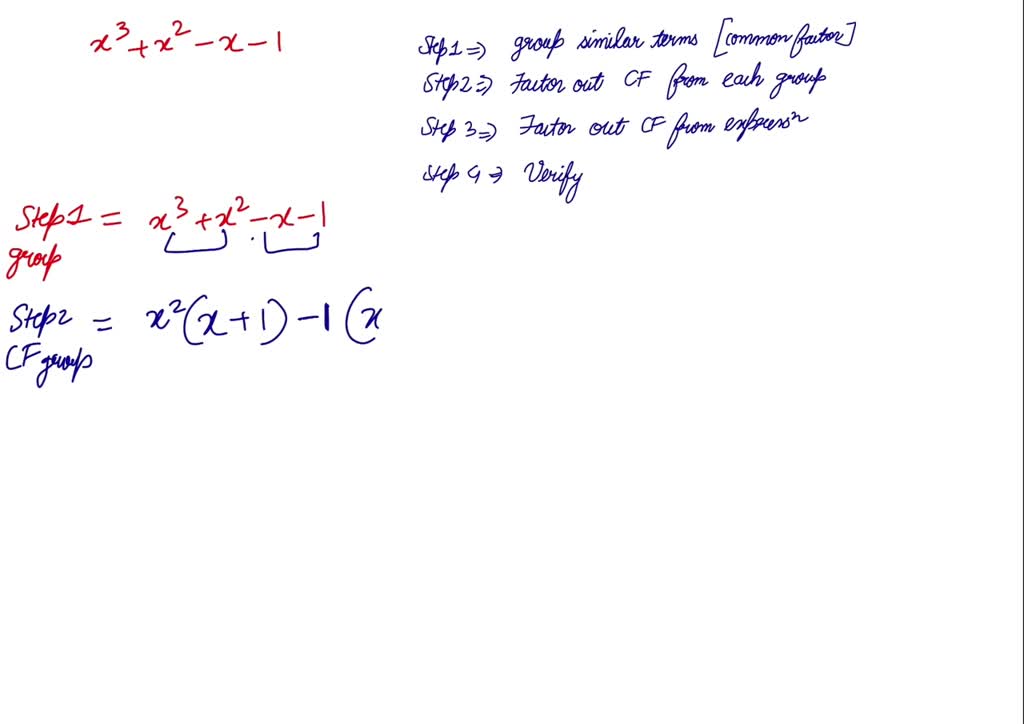 x³+x²-x-1
Step1⇒ group similar terms [common factor]
Step2⇒ Factor out CF from each group
Step 3⇒ Factor out CF from expressⁿ
Step 4⇒ Verify
Step1 = x³+x²-x-1
group
Step2 = x²(x+1)-1(x
CF group